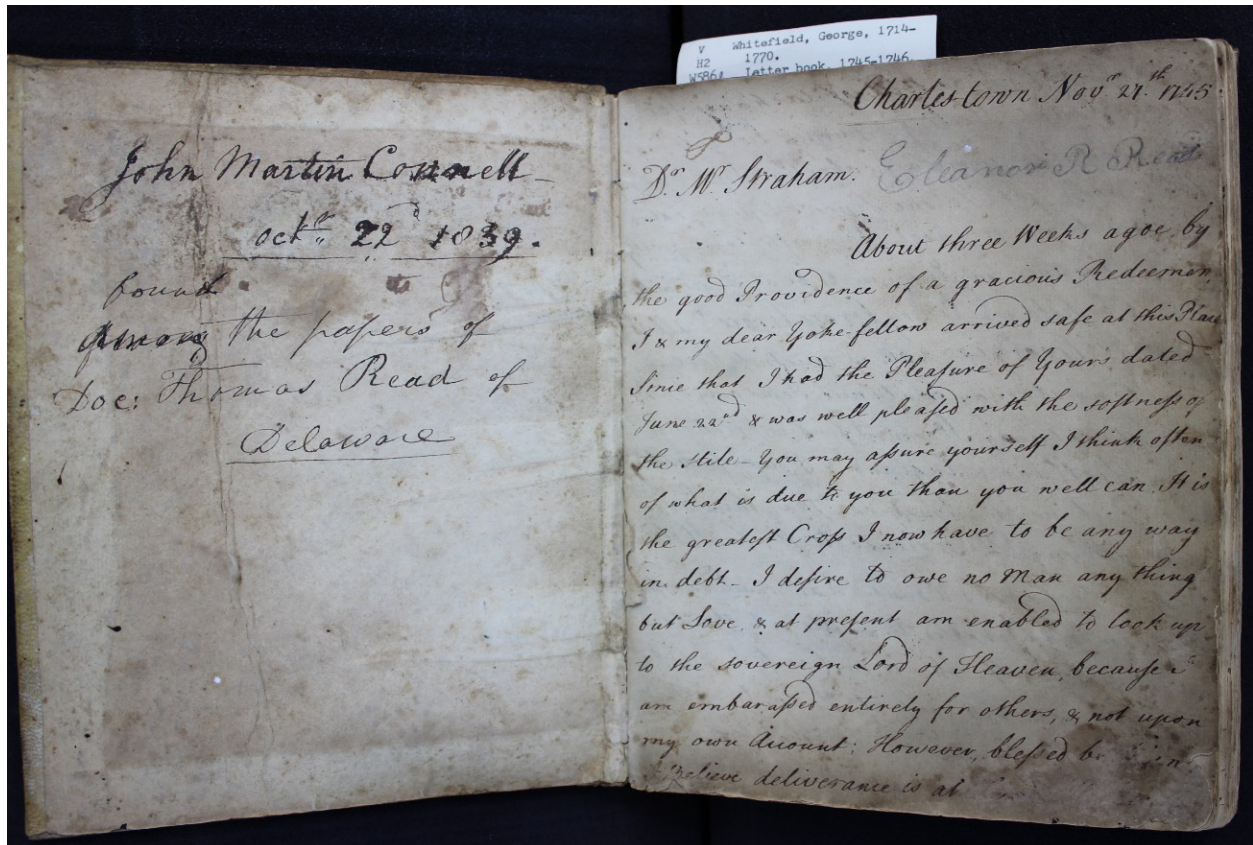 V Whitefield, George, 1714-
H2 1770.
W586l Letter book, 1745-1746.
John Martin Connell
octr 22d 1839.
found
among the papers of
Doc: Thomas Read of
Delaware
Charlestown Novr 27th 1745
Eleanor R Read
Dr Mr Straham.
About three Weeks agoe, by
the good Providence of a gracious Redeemer,
I & my dear Yoke-fellow arrived safe at this Place
Since that I had the Pleasure of Yours dated
June 22nd & was well pleased with the softness of
the stile - You may assure yourself I think often
of what is due to you than you well can. It is
the greatest Cross I now have to be any way
in debt - I desire to owe no Man any thing
but Love, & at present am enabled to look up
to the sovereign Lord of Heaven, because I
am embarassed entirely for others, & not upon
my own Account: However, blessed be
believe deliverance is at